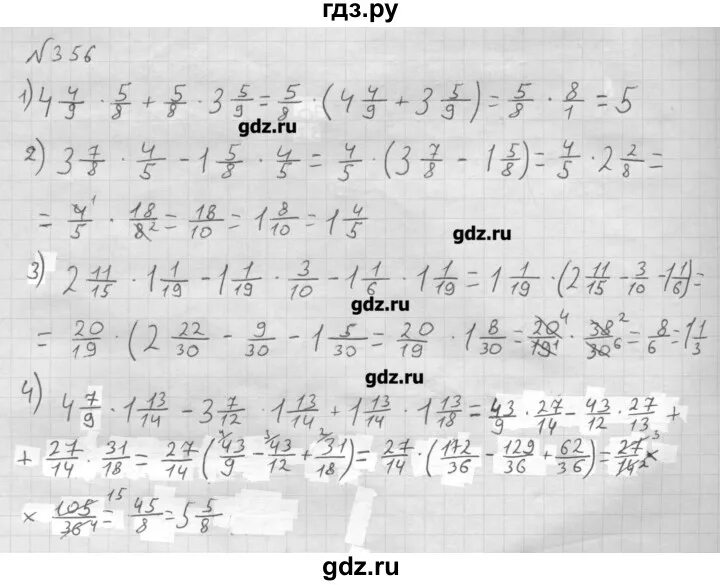 гдз.ру
№356
1) 4 4/9 · 5/8 + 5/8 · 3 5/9 = 5/8 · (4 4/9 + 3 5/9) = 5/8 · 8/1 = 5
gdz.ru
2) 3 7/8 · 4/5 - 1 5/8 · 4/5 = 4/5 · (3 7/8 - 1 5/8) = 4/5 · 2 2/8 =
= 4¹/5 · 18/8² = 18/10 = 1 8/10 = 1 4/5
gdz.ru
3) 2 11/15 · 1 1/19 - 1 1/19 · 3/10 - 1 1/6 · 1 1/19 = 1 1/19 · (2 11/15 - 3/10 - 1 1/6) =
gdz.ru
= 20/19 · (2 22/30 - 9/30 - 1 5/30 = 20/19 · 1 8/30 = 20⁴/19¹ · 38²/30⁶ = 8/6 = 1 1/3
gdz.ru
4) 4 7/9 · 1 13/14 - 3 7/12 · 1 13/14 + 1 13/14 · 1 13/18 = 43/9 · 27/14 - 43/12 · 27/13 +
+ 27/14 · 31/18 = 27/14 (⁴43/9 - ³43/12 + ²31/18) = 27/14 · (172/36 - 129/36 + 62/36) = 27³/14² ×
× 105¹⁵/36⁴ = 45/8 = 5 5/8
gdz.ru
gdz.ru